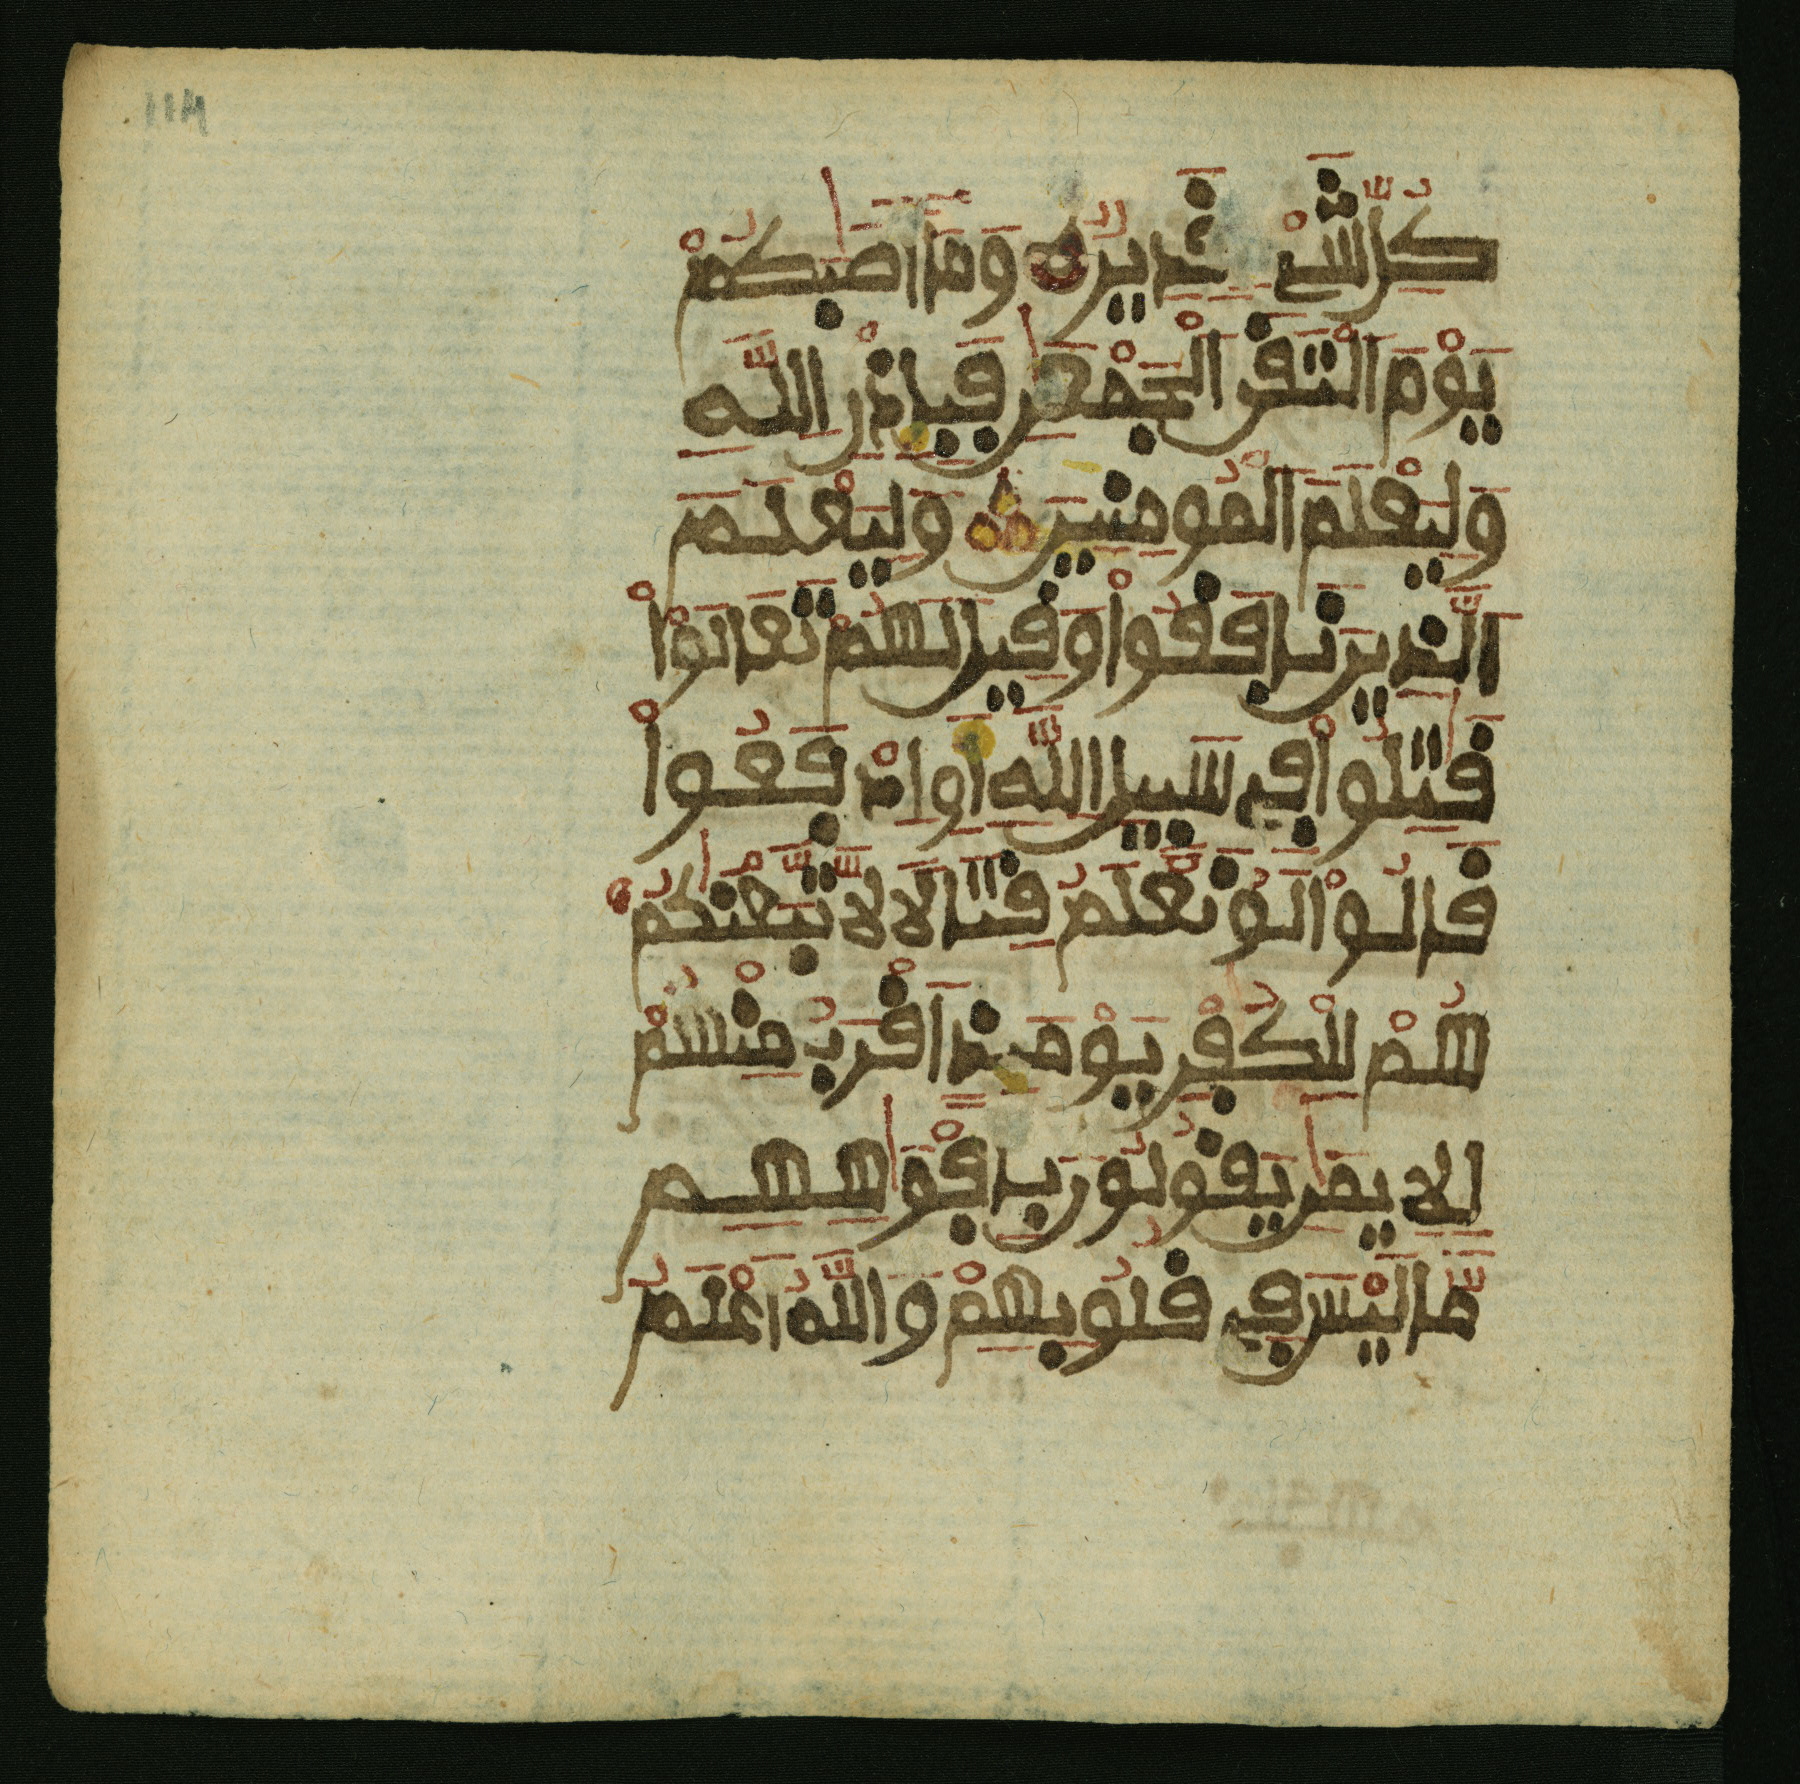 114
كُلِّ شَےْءٖ قَدِيرٞ وَمَا أَصَٰبَكُمْ
يَوْمَ اَلْتَقَى اَلْجَمْعَٰنِ فَبِإِذْنِ اِللَّهِ
وَلِيَعْلَمَ اَلْمُومِنِينَ وَلِيَعْلَمَ
اَلَّذِينَ نَافَقُواْ وَقِيلَ لَهُمْ تَعَالَوْاْ
قَٰتِلُواْ فِے سَبِيلِ اِللَّهِ أَوِ اِدْفَعُواْ
قَالُواْ لَوْ نَعْلَمُ قِتَالاٗ لاَّ تَّبَعْنَٰكُمْ
هُمْ لِلْكُفْرِ يَوْمَئِذٍ أَقْرَبُ مِنْهُمْ
لِلاِيمَٰنِ يَقُولُونَ بِأَفْوَٰهِهِم
مَّا لَيْسَ فِے قُلُوبِهِمْ وَاللَّهُ أَعْلَمُ